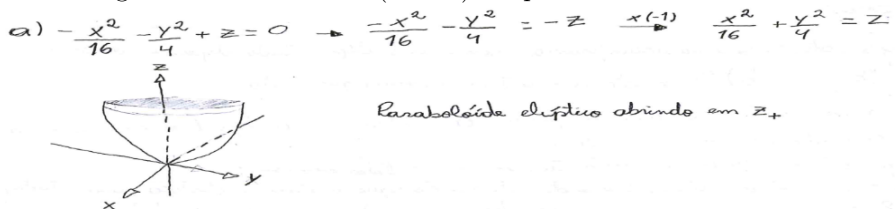 a) - x²/16 - y²/4 + z = 0 → -x²/16 - y²/4 = -z x(-1)→ x²/16 + y²/4 = z
z
Parabolóide elíptico abrindo em z+
y
x